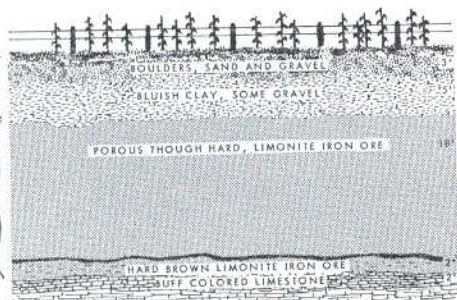 BOULDERS, SAND AND GRAVEL 3'
BLUISH CLAY, SOME GRAVEL 5'
POROUS THOUGH HARD, LIMONITE IRON ORE 18'
HARD BROWN LIMONITE IRON ORE 2'
BUFF COLORED LIMESTONE 2'